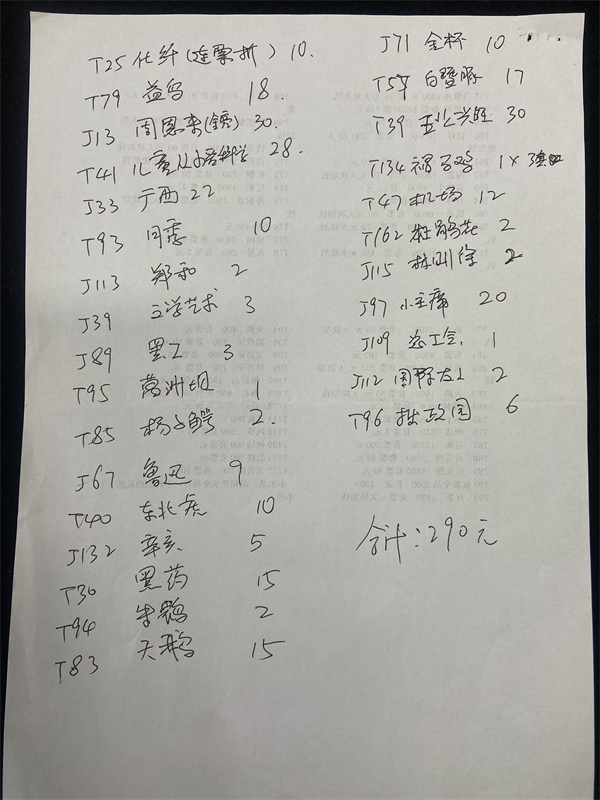 T25 化纤(连票折) 10.
T79 益鸟 18.
J13 周恩来 30.
T41 儿童从小爱科学 28.
J33 广西 22
T93 月季 10
J113 郑和 2
J39 文学艺术 3
J89 罢工 3
T95 葛洲坝 1
T85 扬子鳄 2.
J67 鲁迅 9
T40 东北虎 10
J132 辛亥 5
T30 黑药 15
T94 朱鹮 2
T83 天鹅 15
J71 金杯 10
白暨豚 17
T39 五业兴旺 30
T134 1 × 3
T47 机场 12
T162 杜鹃花 2
J115 林则徐 2
J97 小主席 20
J109 总工会 1
J112 2
T96 拙政园 6
合计：290元